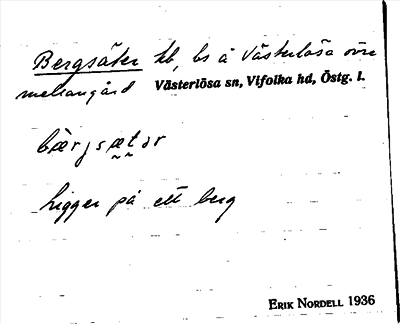 Bergsäter hb, bs å Västerlösa övre
mellangård Västerlösa sn, Vifolka hd, Östg. l.
bærjsætər
ligger på ett berg
ERIK NORDELL 1936